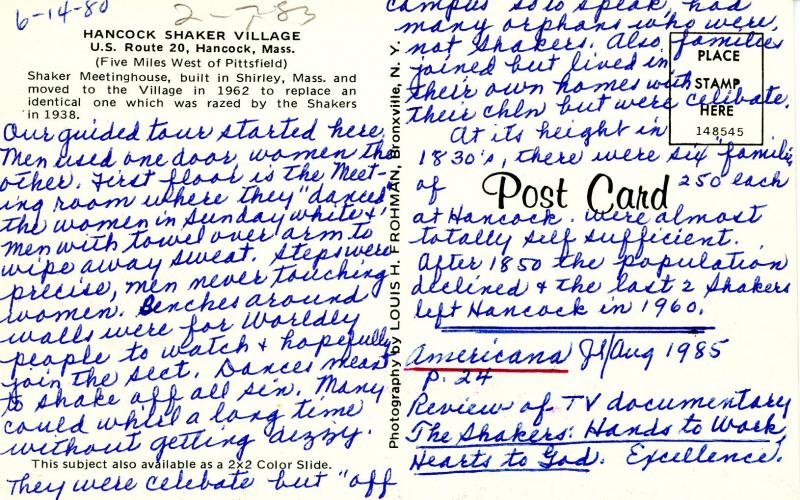 6-14-80
2-7-83
HANCOCK SHAKER VILLAGE
U.S. Route 20, Hancock, Mass.
(Five Miles West of Pittsfield)
Shaker Meetinghouse, built in Shirley, Mass. and
moved to the Village in 1962 to replace an
identical one which was razed by the Shakers
in 1938.
Our guided tour started here.
Men used one door, women the
other. First floor is the Meet-
ing room where they "danced"
the women in Sunday white &
men with towel over arm to
wipe away sweat. Steps were
precise, men never touching
women. Benches around
walls were for Worldly
people to watch & hopefully
join the sect. Dances meant
to shake off all sin. Many
could whirl a long time
without getting dizzy.
This subject also available as a 2x2 Color Slide.
They were celebate but "off
Photography by LOUIS H. FROHMAN, Bronxville, N. Y.
campus" so to speak, had
many orphans who were
not Shakers. Also families
joined but lived in
their own homes with
their chln but were celibate.
PLACE
STAMP
HERE
148545
At its height in
1830's, there were six "families
of 250 each
Post Card
at Hancock. Were almost
totally self sufficient.
After 1850 the population
declined & the last 2 Shakers
left Hancock in 1960.
Americana Jl/Aug 1985
p. 24
Review of TV documentary
The Shakers: Hands to Work,
Hearts to God. Excellence.